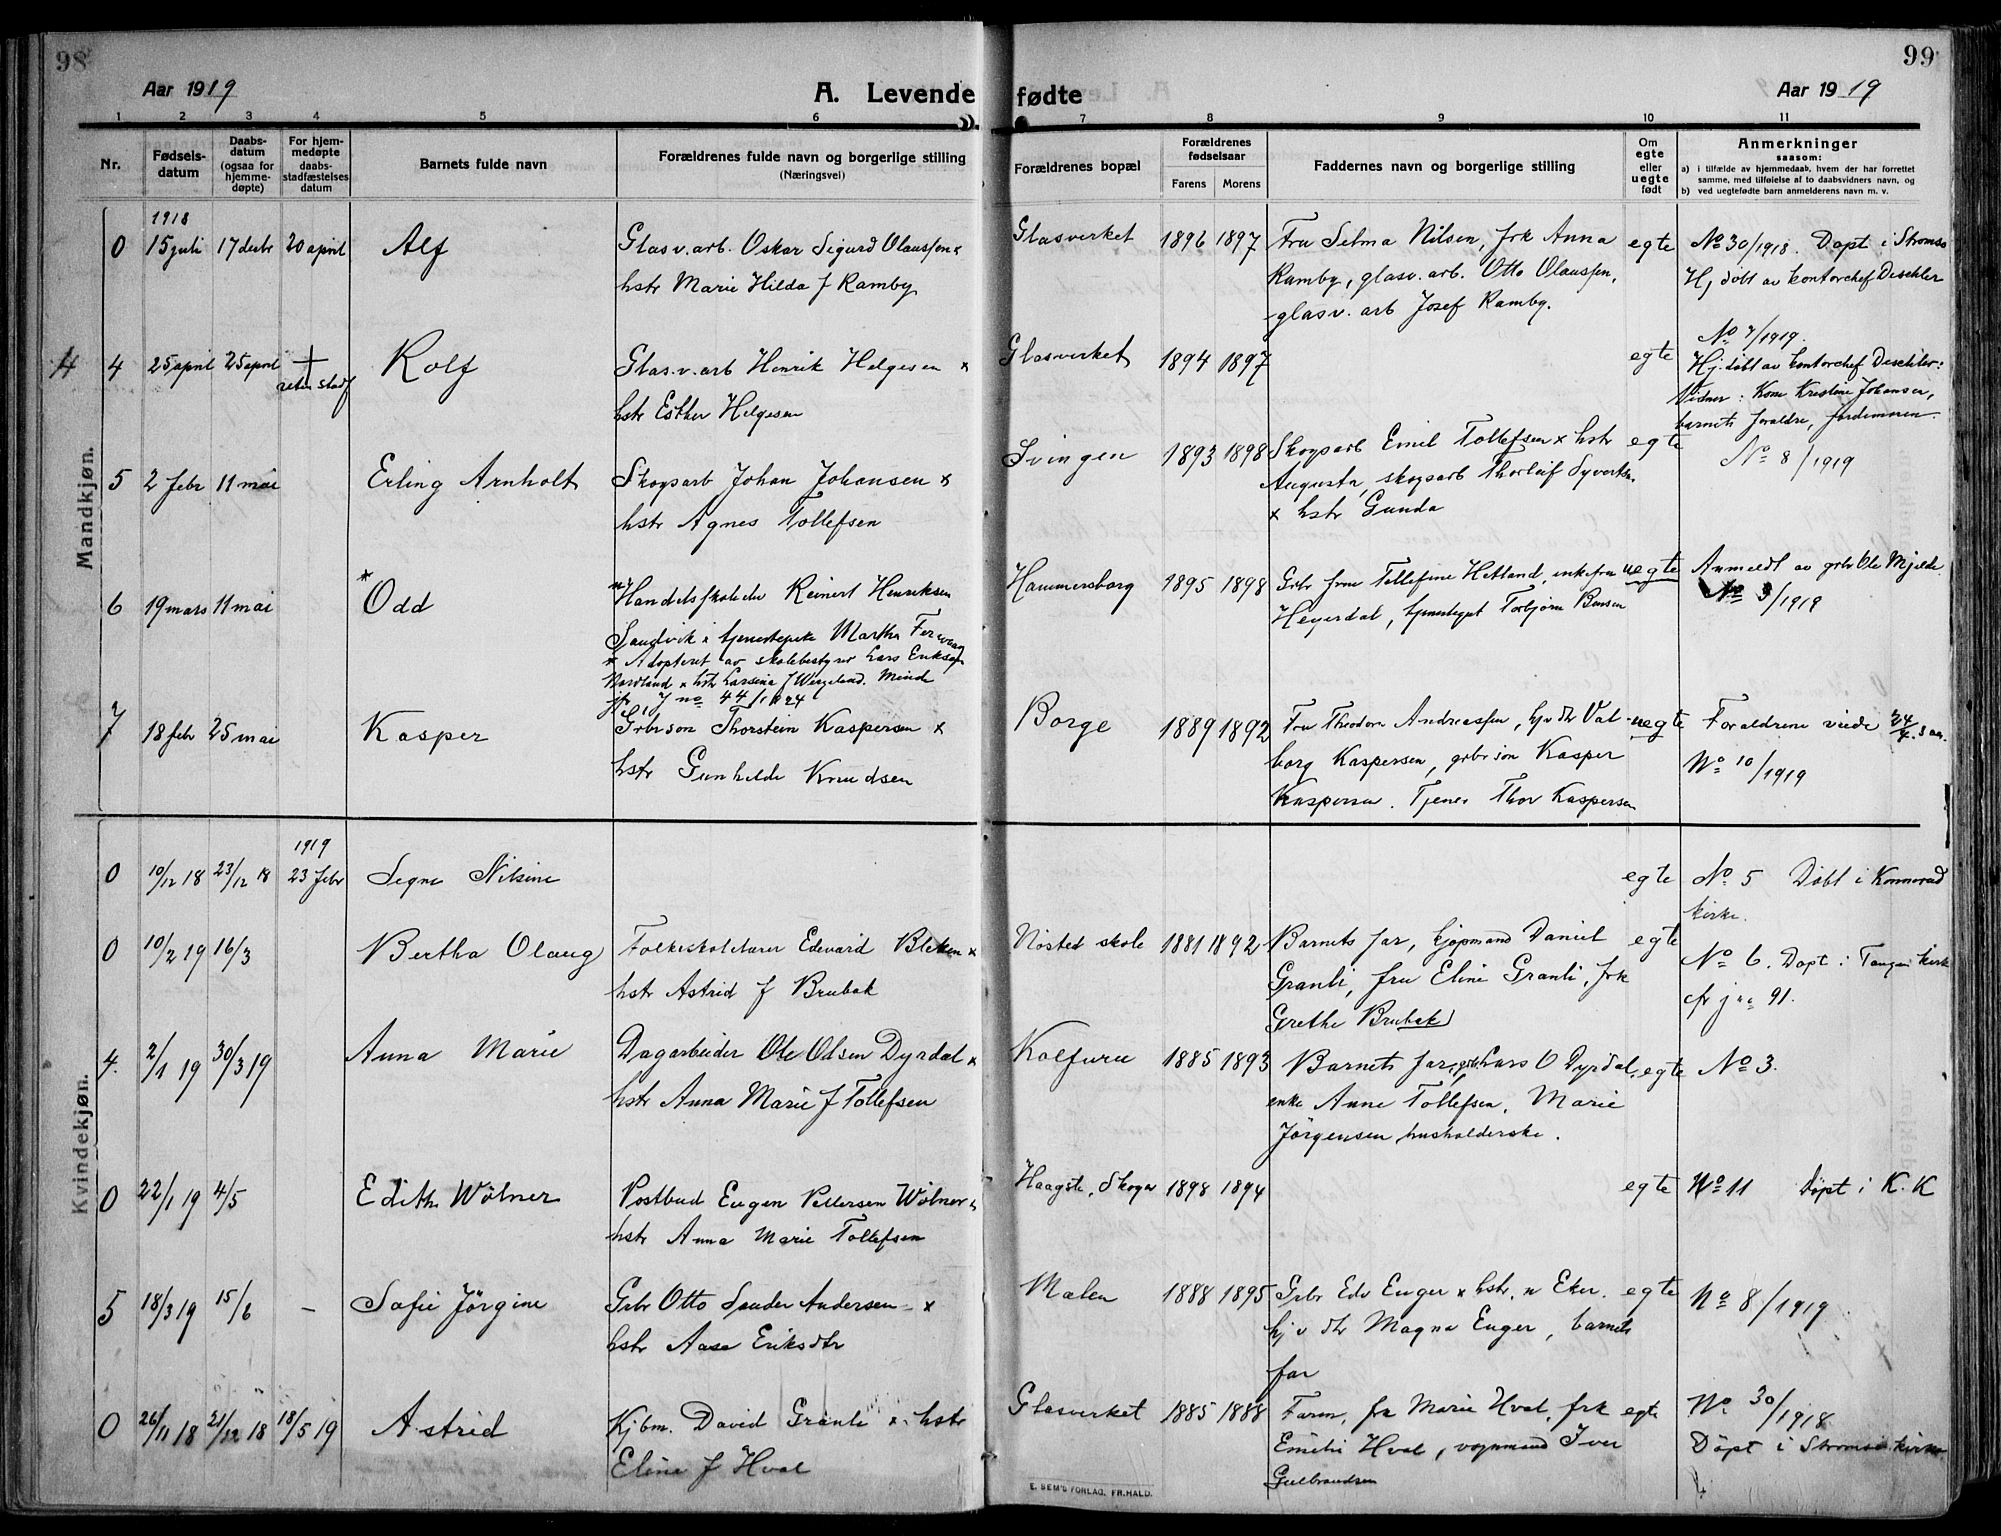 98
Aar 1919
A. Levende
1 2 3 4 5 6
Nr. Fødsels-datum Daabs-datum (ogsaa for hjemme-døpte) For hjem-medøpte daabs-stadfæstelses datum Barnets fulde navn Forældrenes fulde navn og borgerlige stilling (Næringsvei)
Mandkjøn.
1918
0 15 juli 17 decbr 20 april Alf Glasv. arb. Oskar Sigurd Olaussen x
hstr Marie Hilda f Ramby
4 4 25 april 25 april + Rolf Glas.v. arb Henrik Helgesen x
hstr Esther Helgesen
5 2 febr 11 mai Erling Arnholt Skogsarb Johan Johansen x
hstr Agnes Tollefsen
6 19 mars 11 mai * Odd Handelsskoleelev Reinert Henriksen
Sandvik x tjenestepike Martha
* Adopteret av skolebestyrer Lars Eriksen
Nordland x hstr Larsina f Wergeland. Minde
jfr J no 44/1924
7 18 febr 25 mai Kasper Grbr søn Thorstein Kaspersen x
hstr Gunhilde Knudsen
Kvindekjøn.
1919
0 10/12 18 23/12 18 23 febr Signe Nilsine
0 10/2 19 16/3 Bertha Olaug Folkeskolelærer Edevard Bleken x
hstr Astrid f Brubak
4. 2/1 19 30/3 19 Anna Marie Dagarbeider Ole Olsen Dyrdal x
hstr Anna Marie f Tollefsen
0 22/1 19 4/5 Edith Wölner Postbud Eugen Pettersen Wölner x
hstr Anna Marie Tollefsen
5 18/3 19 15/6 – Sofie Jörgine Grbr Otto Sander Andersen x
hstr Aase Eriksdtr
0 26/11 18 21/12 18 18/5 19 Astrid Kjbm. David Granli x hstr
Eline f Hval
99
fødte
Aar 1919
7 8 9 10 11
Forældrenes bopæl Forældrenes fødselsaar Farens Morens Faddernes navn og borgerlige stilling Om egte eller uegte født Anmerkninger saasom:
a) i tilfælde av hjemmedaab, hvem der har forrettet samme, med tilføielse af to daabsvidners navn, og
b) ved uegtefødte barn anmelderens navn m. v.
Glasverket 1896 1897 Fru Selma Nilsen, frk Anna egte No 30/1918. Døpt i Strømsø
Ramby, glasv. arb. Otto Olaussen, Hj døbt av kontorchef Deschler
glasv. arb Josef Ramby.
Glasverket 1894 1897 egte No 7/1919.
Hj. døbt av kontorchef Deschler:
Vidner: Kone Kristine Johansen,
barnets forældre, jordemoren.
Svingen 1893 1898 Skogsarb Emil Tollefsen x hstr egte No 8/1919
Augusta, skogsarb Thorleif Syvertsen
x hstr Gunda
Hammersborg 1895 1898 Grbr frue Tellefine Hetland, enkefru uegte Anmeldt av grbr Ole Mjelde
Heyerdal, tjenestegut Torbjörn Bensen No 9/1919
Borge 1889 1892 Fru Theodora Andreassen, hjv dtr Val- uegte Forældrene viede 24/4 s. aar.
borg Kaspersen, grbr søn Kasper No 10/1919
Kaspersen. Tjener Thor Kaspersen
egte No 5 Døbt i Konnerud
kirke.
Nøsted skole 1881 1892 Barnets far, kjøpmand Daniel egte No 6. Døpt i Tangen kirke
Granli, fru Eline Granli, frk cfr j no 91.
Grethe Brubak
Kolfuru 1885 1893 Barnets far, grbr Lars O Dyrdal, egte No 3.
enke Anne Tollefsen, Marie
Jörgensen husholderske.
Haagste, Skoger 1898 1894 egte No 11 Døpt i K. K
Malen 1888 1895 Grbr Edv Enger x hstr, n Eker. egte No 8/1919
hj v dtr Magna Enger, barnets
far
Glasverket 1885 1888 Faren, fr Marie Hval, frk egte No 30/1918
Emilie Hval, vognmand Iver Døpt i Strømsø kirke
Gulbrandsen
E. SEM'S FORLAG, FR.HALD.